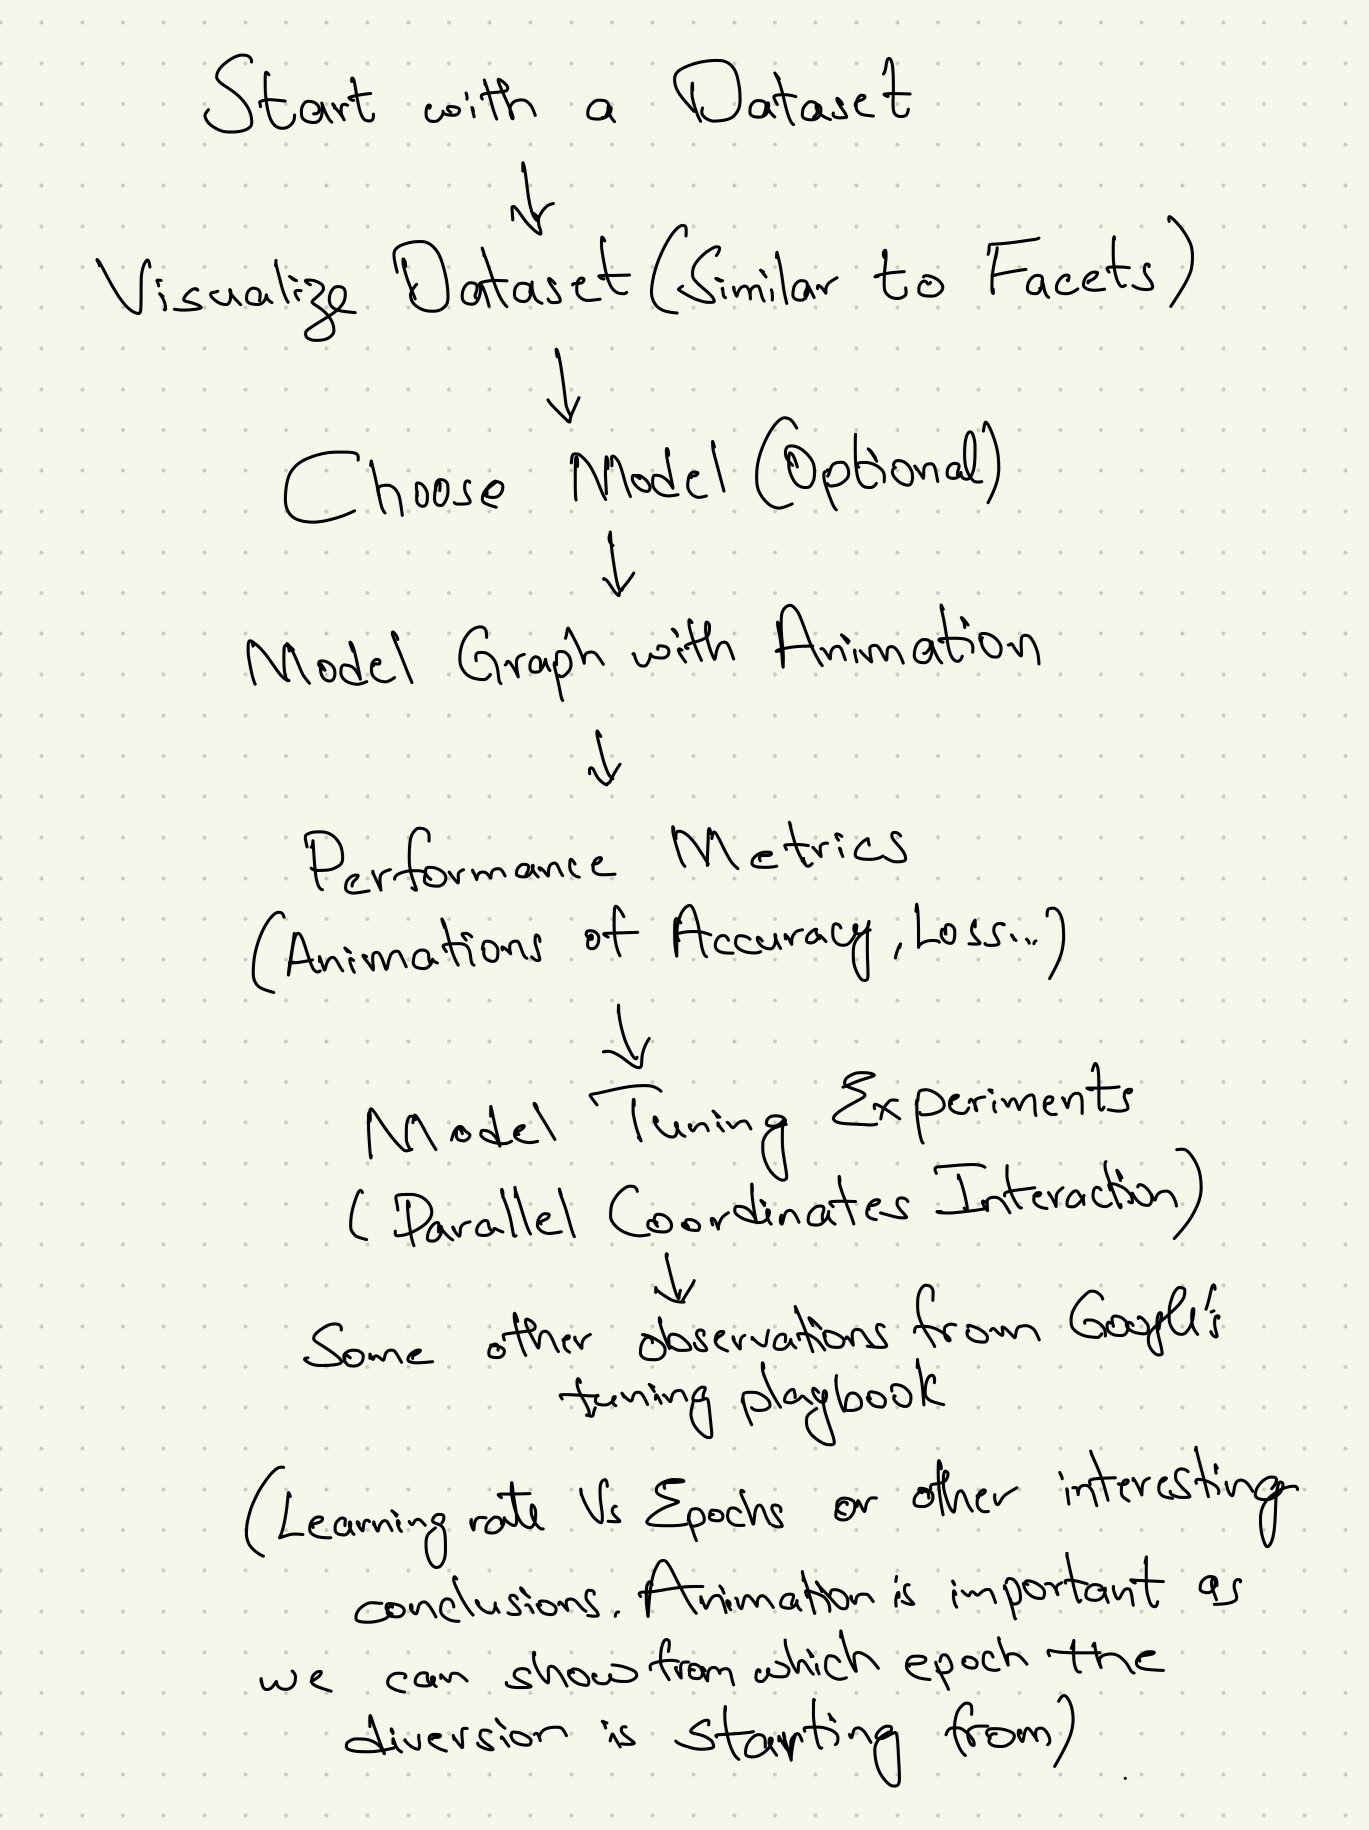 Start with a Dataset
Visualize Dataset (Similar to Facets)
Choose Model (Optional)
Model Graph with Animation
Performance Metrics
(Animations of Accuracy, Loss...)
Model Tuning Experiments
(Parallel Coordinates Interaction)
Some other observations from Google's
tuning playbook
(Learning rate Vs Epochs or other interesting
conclusions. Animation is important as
we can show from which epoch the
diversion is starting from)